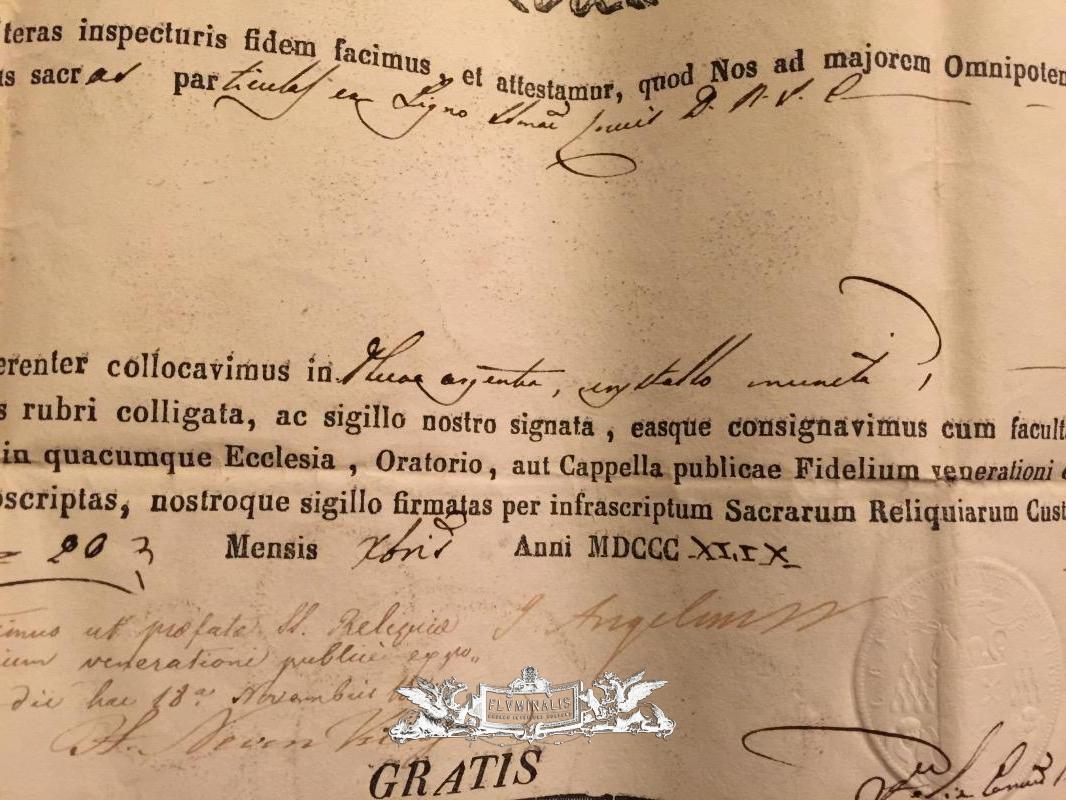 teras inspecturis fidem facimus, et attestamur, quod Nos ad majorem Omnipoten
is sacras particulas ex Ligno SSmae Crucis D. N. J. C.
erenter collocavimus in Theca argentea, crystallo munita,
s rubri colligata, ac sigillo nostro signata, easque consignavimus cum facult
in quacumque Ecclesia, Oratorio, aut Cappella publicae Fidelium venerationi
scriptas, nostroque sigillo firmatas per infrascriptum Sacrarum Reliquiarum Cust
20 Mensis Xbris Anni MDCCCXLIX
imus ut praefatae SS. Reliquiae J. Angelini
ium venerationi publice expo„
die hac 18a Novembris
FLVMINALIS
GRATIS